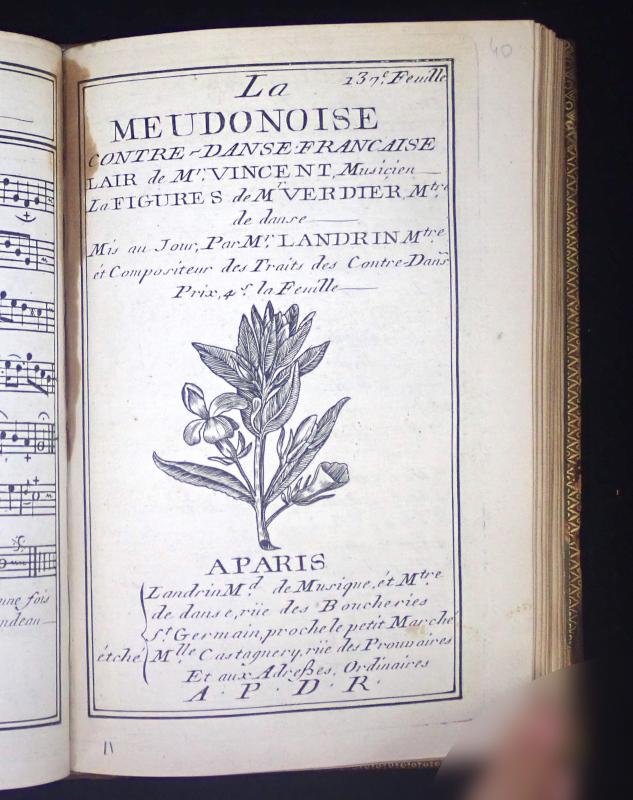 40
La
137.e Feuille
MEUDONOISE
CONTRE-DANSE FRANCAISE
LAIR de M.r VINCENT, Musicien
La FIGURES de M.r VERDIER, M.tre
de danse
Mis au Jour, Par M.r LANDRIN M.tre
ét Compositeur des Traits des Contre-Dans
Prix, 4.s la Feuille
A PARIS
Landrin M.d de Musique, ét M.tre
de danse, rüe des Boucheries
S.t Germain, proche le petit Marché
ét ché M.lle Castagnery, rüe des Prouvaires
Et aux Adreßes, Ordinaires
A. P. D. R.
11
une fois